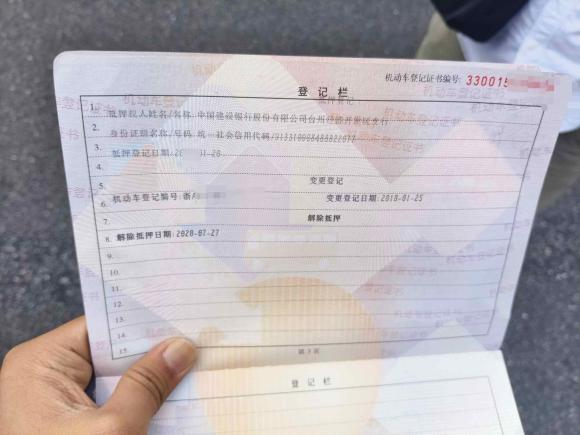 机动车登记证书编号: 330015
登记栏
抵押登记
1.
2. 抵押权人姓名/名称: 中国建设银行股份有限公司台州经济开发区支行
3. 身份证明名称/号码: 统一社会信用代码/
4. 抵押登记日期:
5. 变更登记
6. 机动车登记编号: 浙 变更登记日期: 2018-01-25
7. 解除抵押
8. 解除抵押日期: 2020-07-27
9.
10.
11.
12.
13.
14.
15.
第 3 页
登记栏